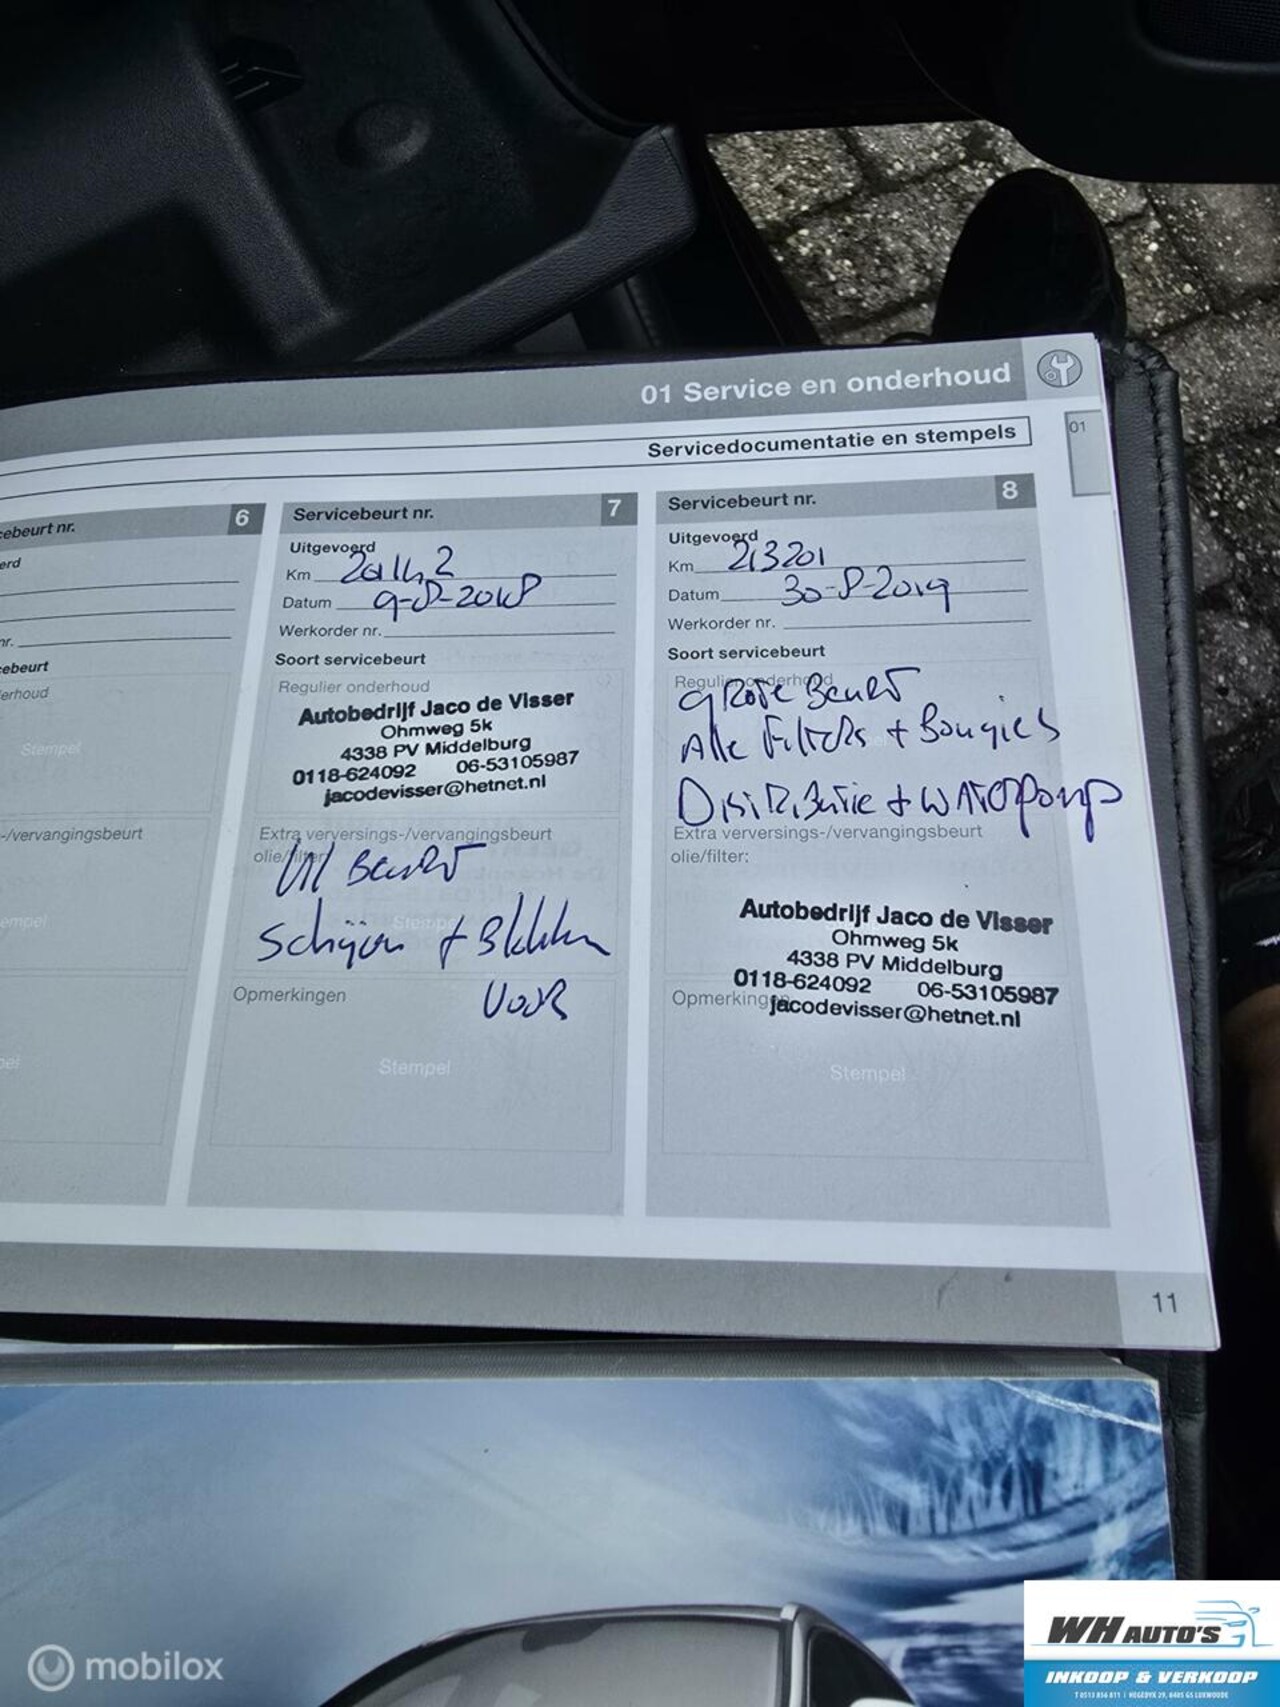 01 Service en onderhoud
01
Servicedocumentatie en stempels
cebeurt nr. 6
erd
nr.
cebeurt
erhoud
Stempel
-/vervangingsbeurt
empel
pel
Servicebeurt nr. 7
Uitgevoerd
Km 201142
Datum 9-8-2018
Werkorder nr.
Soort servicebeurt
Regulier onderhoud
Autobedrijf Jaco de Visser
Ohmweg 5k
4338 PV Middelburg
0118-624092 06-53105987
jacodevisser@hetnet.nl
Extra verversings-/vervangingsbeurt
olie/filter:
Beurt
Schijven + Blokken
Stempel
Voor
Opmerkingen
Stempel
Servicebeurt nr. 8
Uitgevoerd
Km 213201
Datum 30-8-2019
Werkorder nr.
Soort servicebeurt
Regulier onderhoud
Grote Beurt
Alle Filters + Bougies
Distributie + Waterpomp
Extra verversings-/vervangingsbeurt
olie/filter:
Autobedrijf Jaco de Visser
Ohmweg 5k
4338 PV Middelburg
0118-624092 06-53105987
jacodevisser@hetnet.nl
Opmerkingen
Stempel
11
mobilox
WH AUTO'S
INKOOP & VERKOOP
T 0513 856 811 | HEGEDYK 29, 8405 GS LUXWOUDE